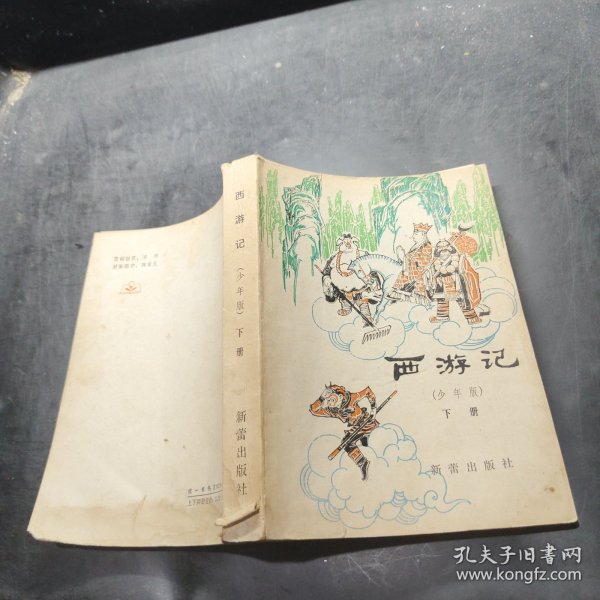 西游记
(少年版)
下册
新蕾出版社
西游记
(少年版)
下册
新蕾出版社
孔夫子旧书网
www.kongfz.com